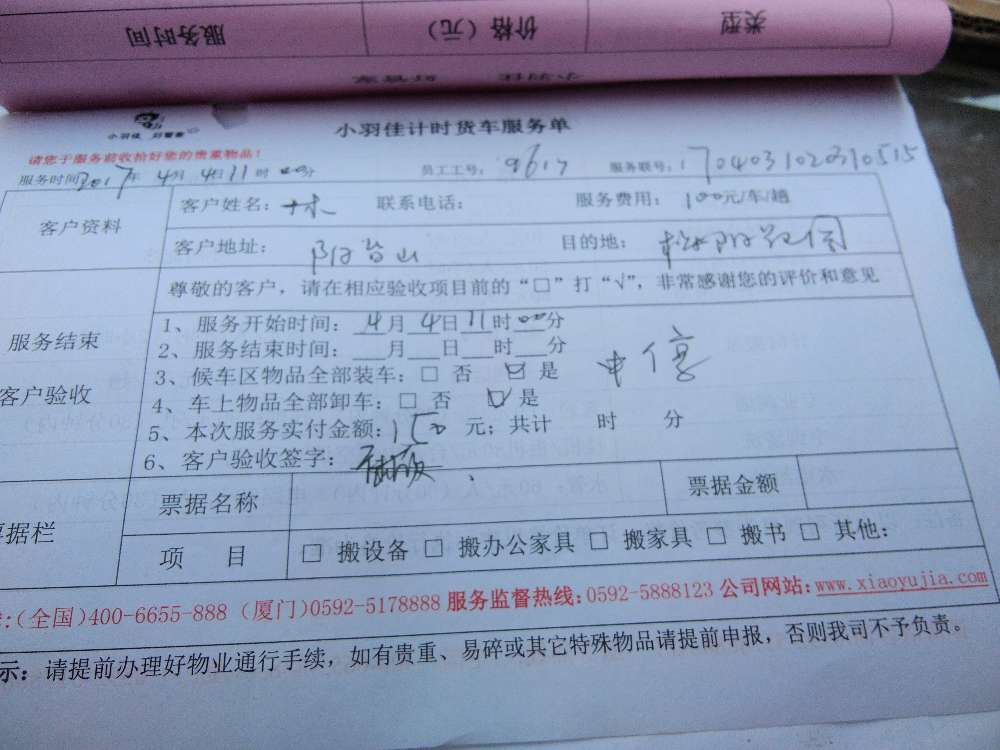 类型 价格（元） 服务时间
小羽佳 好管家
小羽佳计时货车服务单
请您于服务前收拾好您的贵重物品！
服务时间2017年 4月 4日11时00分 员工工号： 9617 服务联号：170403102310515
客户资料
客户姓名： 联系电话： 服务费用： 100元/车/趟
客户地址： 阳台山 目的地：
尊敬的客户，请在相应验收项目前的“□”打“√”，非常感谢您的评价和意见
服务结束
客户验收
1、服务开始时间： 4月 4日11时00分
2、服务结束时间：___月___日___时___分
3、候车区物品全部装车：□ 否 ☑ 是
4、车上物品全部卸车：□ 否 ☑ 是
5、本次服务实付金额：150 元；共计 时 分
6、客户验收签字：
票据栏
票据名称 票据金额
项 目 □ 搬设备 □ 搬办公家具 □ 搬家具 □ 搬书 □ 其他：
：（全国）400-6655-888 （厦门）0592-5178888 服务监督热线：0592-5888123 公司网站：www.xiaoyujia.com
示：请提前办理好物业通行手续，如有贵重、易碎或其它特殊物品请提前申报，否则我司不予负责。